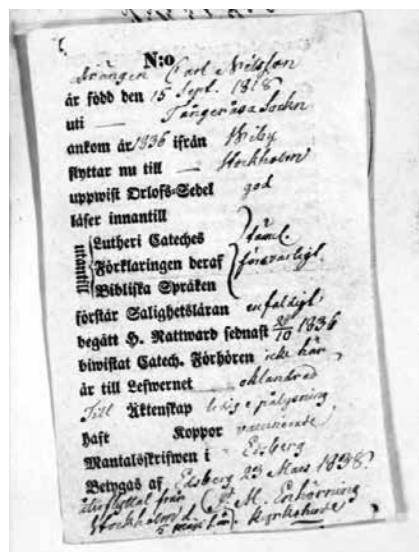 N:o
Drängen Carl Nilsson
är född den 15 Sept. 1818
uti — Tångeråsa Sockn
ankom år 1836 ifrån Wiby
flyttar nu till — Stockholm
uppwist Orlofs-Sedel god
läser innantill
utantill
Lutheri Cateches täml.
Förklaringen deraf försvarligt
Bibliska Språken
förstår Salighetsläran enfaldigt
begått H. Nattward sednast 30/10 1836
biwistat Catech. Förhören icke här
är till Lefwernet oklandrad
Till Äktenskap ledig e pålysning
haft Koppor vaccinerade
Mantalsskrifwen i Edsberg
Betygas af, Edsberg 23 Mars 1838.
återflyttat från M. Enhörning
Stockholm d. Kyrkoherde